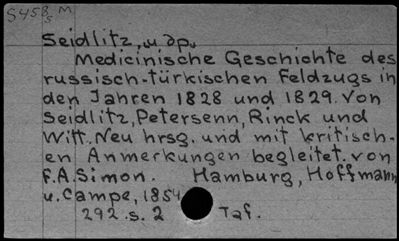 S458 M
s
Seidlitz, и др.
Medicinische Geschichte des
russisch-türkischen Feldzugs in
den Jahren 1828 und 1829. Von
Seidlitz, Petersenn, Rinck und
Witt. Neu hrsg. und mit kritisch-
en Anmerkungen begleitet von
F.A. Simon. Hamburg, Hoffmann
u. Campe, 1854
292 s. 2 Taf.